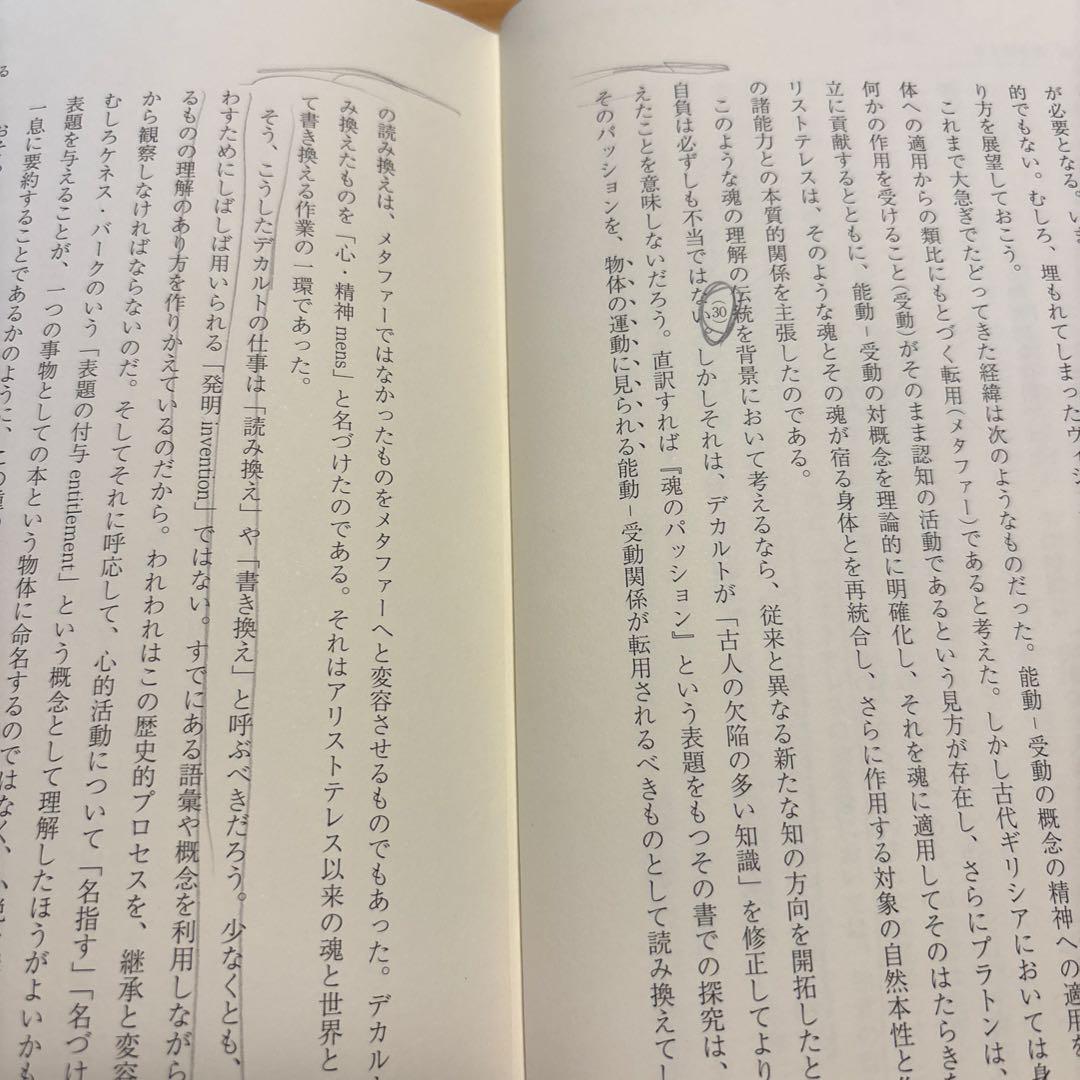 が必要となる。いま
的でもない。むしろ、埋もれてしまったヴィジ
り方を展望しておこう。
これまで大急ぎでたどってきた経緯は次のようなものだった。能動−受動の概念の精神への適用を
体への適用からの類比にもとづく転用(メタファー)であると考えた。しかし古代ギリシアにおいては身
何かの作用を受けること(受動)がそのまま認知の活動であるという見方が存在し、さらにプラトンは、
立に貢献するとともに、能動−受動の対概念を理論的に明確化し、それを魂に適用してそのはたらきを
リストテレスは、そのような魂とその魂が宿る身体とを再統合し、さらに作用する対象の自然本性と
の諸能力との本質的関係を主張したのである。
このような魂の理解の伝統を背景において考えるなら、従来と異なる新たな知の方向を開拓したと
自負は必ずしも不当ではない㉚しかしそれは、デカルトが「古人の欠陥の多い知識」を修正してより
えたことを意味しないだろう。直訳すれば『魂のパッション』という表題をもつその書での探究は、
そのパッションを、物体の運動に見られる能動−受動関係が転用されるべきものとして読み換えて
の読み換えは、メタファーではなかったものをメタファーへと変容させるものでもあった。デカル
み換えたものを「心・精神 mens」と名づけたのである。それはアリストテレス以来の魂と世界と
て書き換える作業の一環であった。
そう、こうしたデカルトの仕事は「読み換え」や「書き換え」と呼ぶべきだろう。少なくとも、
わすためにしばしば用いられる「発明 invention」ではない。すでにある語彙や概念を利用しながら
るものの理解のあり方を作りかえているのだから。われわれはこの歴史的プロセスを、継承と変容
から観察しなければならないのだ。そしてそれに呼応して、心的活動について「名指す」「名づけ
むしろケネス・バークのいう「表題の付与 entitlement」という概念として理解したほうがよいかも
表題を与えることが、一つの事物としての本という物体に命名するのではなく、
一息に要約することであるかのように、この
おそら
る